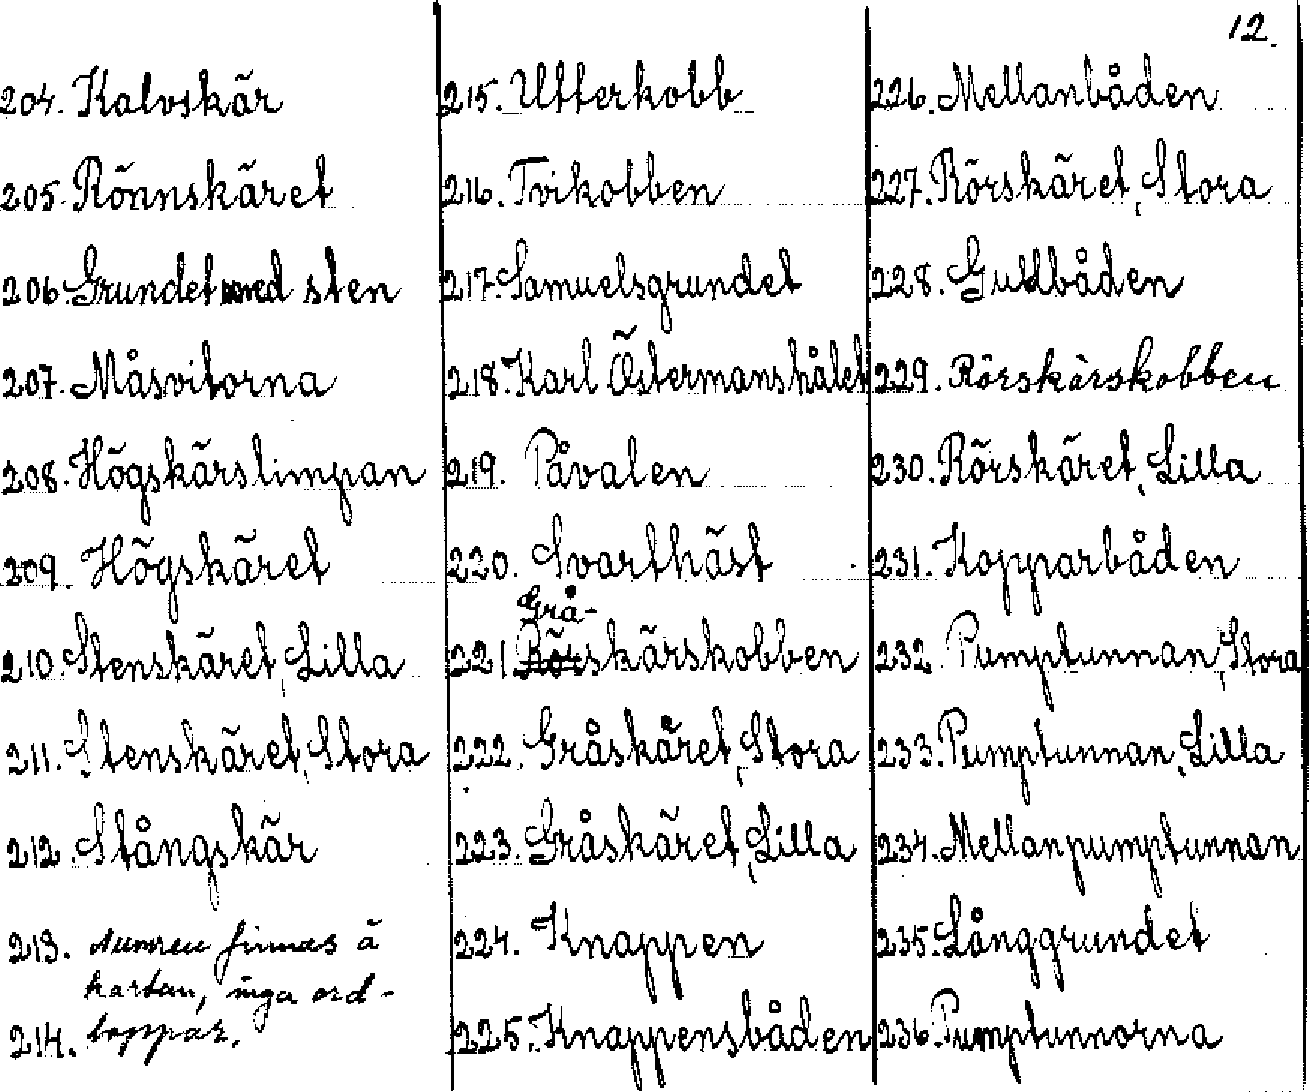 12.
204. Kalvskär
205. Rönnskäret
206. Grundet med sten
207. Måsvitorna
208. Högskärslimpan
209. Högskäret
210. Stenskäret, Lilla
211. Stenskäret, Stora
212. Stångskär
213. Numren finnas å
kartan, inga ord-
214. lappar.
215. Utterkobb
216. Tvikobben
217. Samuelsgrundet
218. Karl Östermanshålet
219. Påvalen
220. Svarthäst
Grå-
221 Rörskärskobben
222. Gråskäret, Stora
223. Gråskäret, Lilla
224. Knappen
225. Knappensbåden
226. Mellanbåden
227. Rörskäret, Stora
228. Guldbåden
229. Rörskärskobben
230. Rörskäret, Lilla
231. Kopparbåden
232. Pumptunnan, Stora
233. Pumptunnan, Lilla
234. Mellanpumptunnan
235. Långgrundet
236. Pumptunnorna